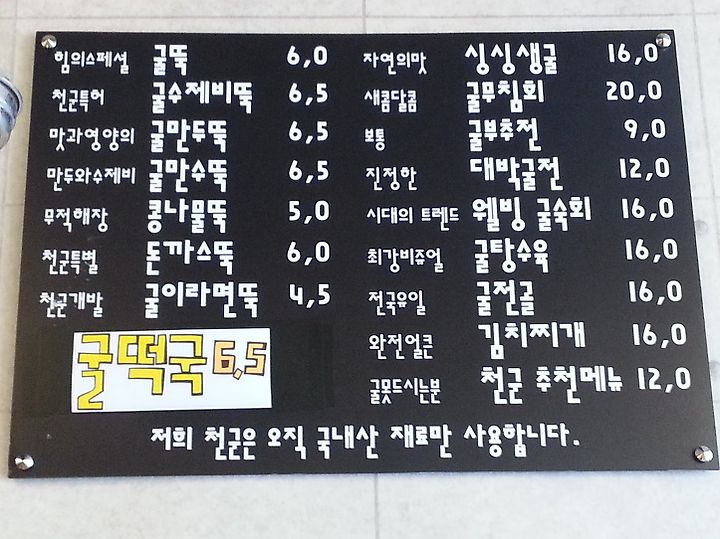 힘의스페셜 굴뚝 6,0
천군특허 굴수제비뚝 6,5
맛과영양의 굴만두뚝 6,5
만두와수제비 굴만수뚝 6,5
무적해장 콩나물뚝 5,0
천군특별 돈까스뚝 6,0
천군개발 굴이라면뚝 4,5
굴떡국 6,5
자연의맛 싱싱생굴 16,0
새콤달콤 굴무침회 20,0
보통 굴부추전 9,0
진정한 대박굴전 12,0
시대의 트렌드 웰빙 굴숙회 16,0
최강비쥬얼 굴탕수육 16,0
전국유일 굴전골 16,0
완전얼큰 김치찌개 16,0
굴못드시는분 천군 추천메뉴 12,0
저희 천군은 오직 국내산 재료만 사용합니다.